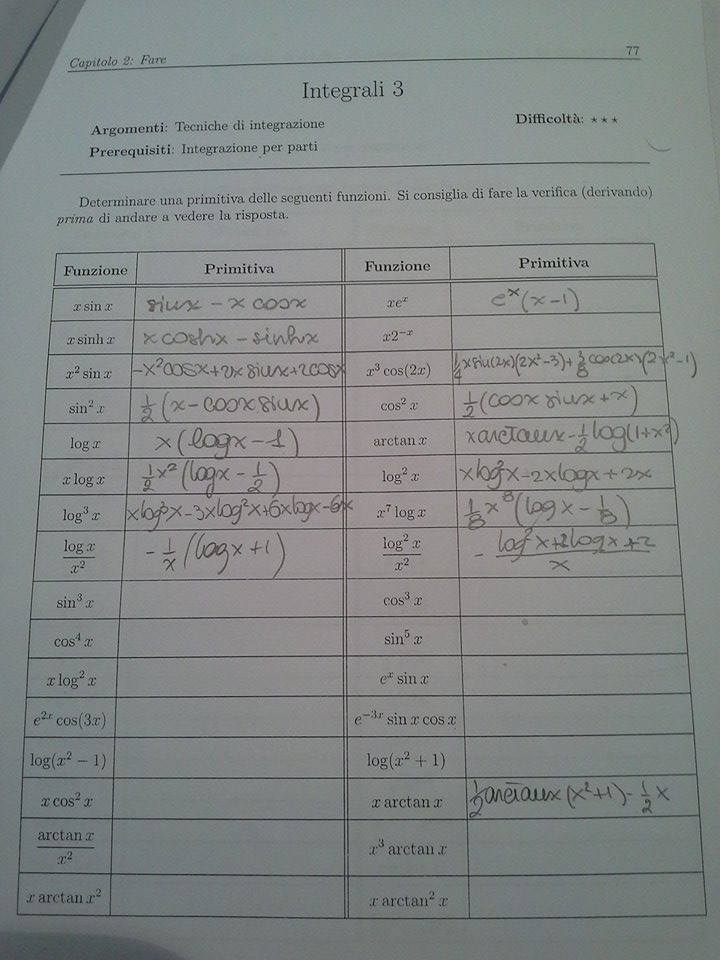 Capitolo 2: Fare 77
Integrali 3
Argomenti: Tecniche di integrazione Difficoltà: ⋆ ⋆ ⋆
Prerequisiti: Integrazione per parti
Determinare una primitiva delle seguenti funzioni. Si consiglia di fare la verifica (derivando)
prima di andare a vedere la risposta.
Funzione Primitiva Funzione Primitiva
x sin x sinx - x cosx xe^x e^x(x-1)
x sinh x x coshx - sinhx x2^{-x}
x² sin x -x²cosx+2x sinx+2cosx x³ cos(2x) 1/4 x sin(2x)(2x²-3)+3/8 cos(2x)(2x²-1)
sin² x 1/2 (x - cosx sinx) cos² x 1/2 (cosx sinx + x)
log x x(logx - 1) arctan x x arctanx - 1/2 log(1+x²)
x log x 1/2 x² (logx - 1/2) log² x xlog²x - 2xlogx + 2x
log³ x xlog³x-3xlog²x+6xlogx-6x x⁷ log x 1/8 x⁸ (log x - 1/8)
log x / x² - 1/x (logx+1) log² x / x² - (log²x+2logx+2) / x
sin³ x cos³ x
cos⁴ x sin⁵ x
x log² x e^x sin x
e^{2x} cos(3x) e^{-3x} sin x cos x
log(x² − 1) log(x² + 1)
x cos² x x arctan x 1/2 arctanx (x²+1) - 1/2 x
arctan x / x² x³ arctan x
x arctan x² x arctan² x